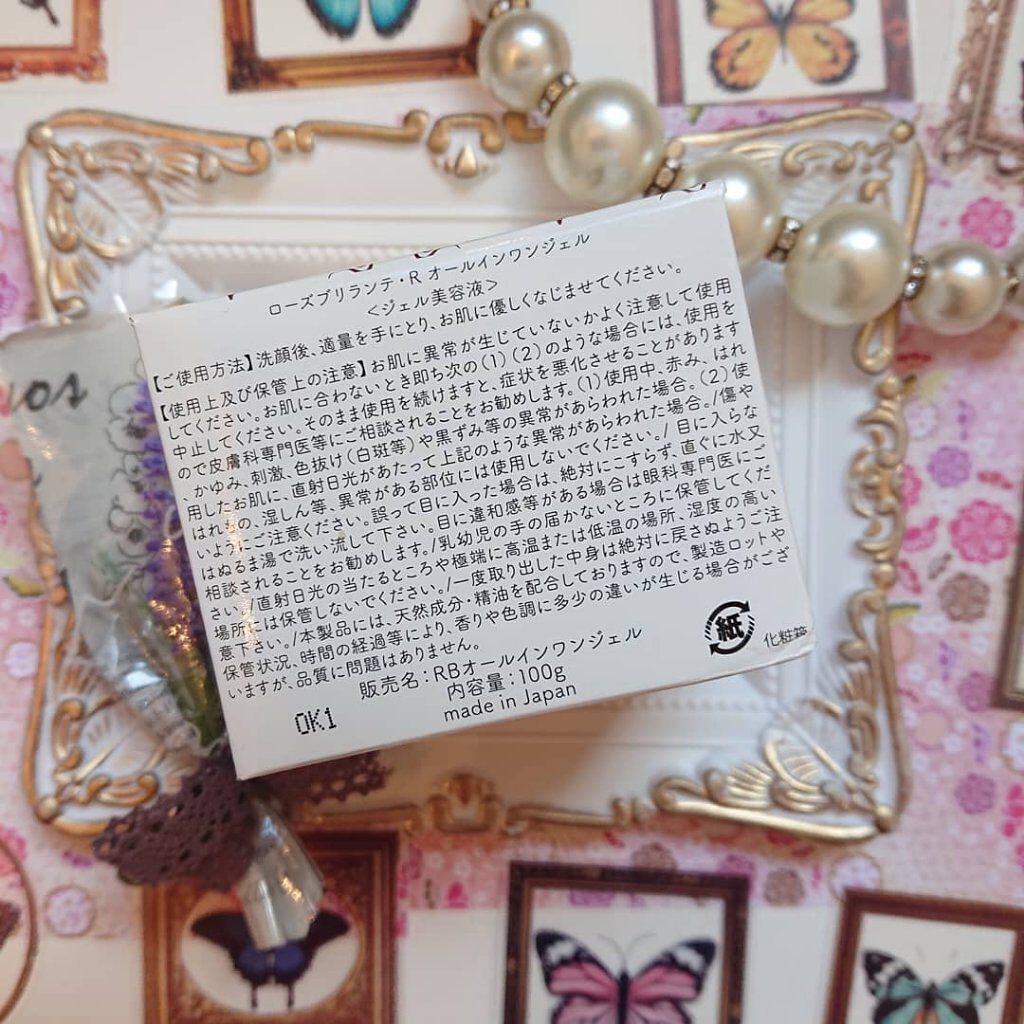 ローズブリランテ・R オールインワンジェル
<ジェル美容液>
【ご使用方法】洗顔後、適量を手にとり、お肌に優しくなじませてください。
【使用上及び保管上の注意】お肌に異常が生じていないかよく注意して使用
してください。お肌に合わないとき即ち次の(1)(2)のような場合には、使用を
中止してください。そのまま使用を続けますと、症状を悪化させることがあります
ので皮膚科専門医等にご相談されることをお勧めします。(1)使用中、赤み、はれ
、かゆみ、刺激、色抜け(白斑等)や黒ずみ等の異常があらわれた場合。(2)使
用したお肌に、直射日光があたって上記のような異常があらわれた場合。/傷や
はれもの、湿しん等、異常がある部位には使用しないでください。/目に入らな
いようにご注意ください。誤って目に入った場合は、絶対にこすらず、直ぐに水又
はぬるま湯で洗い流して下さい。目に違和感等がある場合は眼科専門医にご
相談されることをお勧めします。/乳幼児の手の届かないところに保管してくだ
さい。/直射日光の当たるところや極端に高温または低温の場所、湿度の高い
場所には保管しないでください。/一度取り出した中身は絶対に戻さぬようご注
意下さい。/本製品には、天然成分・精油を配合しておりますので、製造ロットや
保管状況、時間の経過等により、香りや色調に多少の違いが生じる場合がござ
いますが、品質に問題はありません。
販売名:RBオールインワンジェル
内容量:100g
made in Japan
OK1
紙
化粧箱